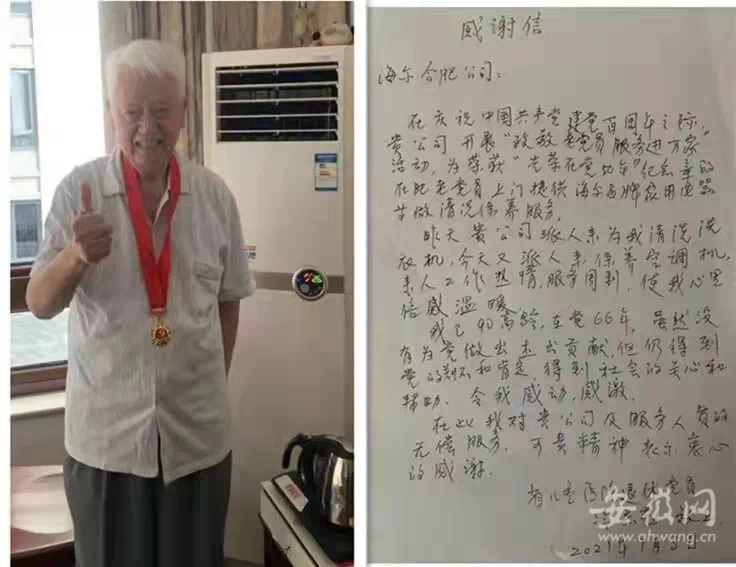 感谢信
海尔合肥公司：
在庆祝中国共产党建党百周年之际，
贵公司开展“致敬老党员服务进万家”
活动，为荣获“光荣在党50年”纪念章的
在肥老党员上门提供海尔品牌家用电器
等做清洗保养服务。
昨天贵公司派人来为我清洗洗
衣机，今天又派人来保养空调机，
来人工作热情，服务周到，使我心里
倍感温暖。
我已90高龄，在党66年，虽然没
有为党做出杰出贡献，但仍得到
党的关怀和肯定，得到社会的关心和
帮助。令我感动，感激。
在此我对贵公司及服务人员的
无偿服务，可贵精神表示衷心
的感谢。
省儿童医院退休党员
2021年7月5日
安徽网
www.ahwang.cn